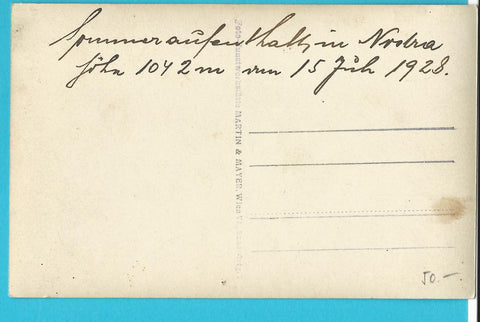 Sommeraufenthalt, in Nodra
Höhe 1042 m am 15 Juli 1928.
MARTIN & MAYER, Wien
50.-